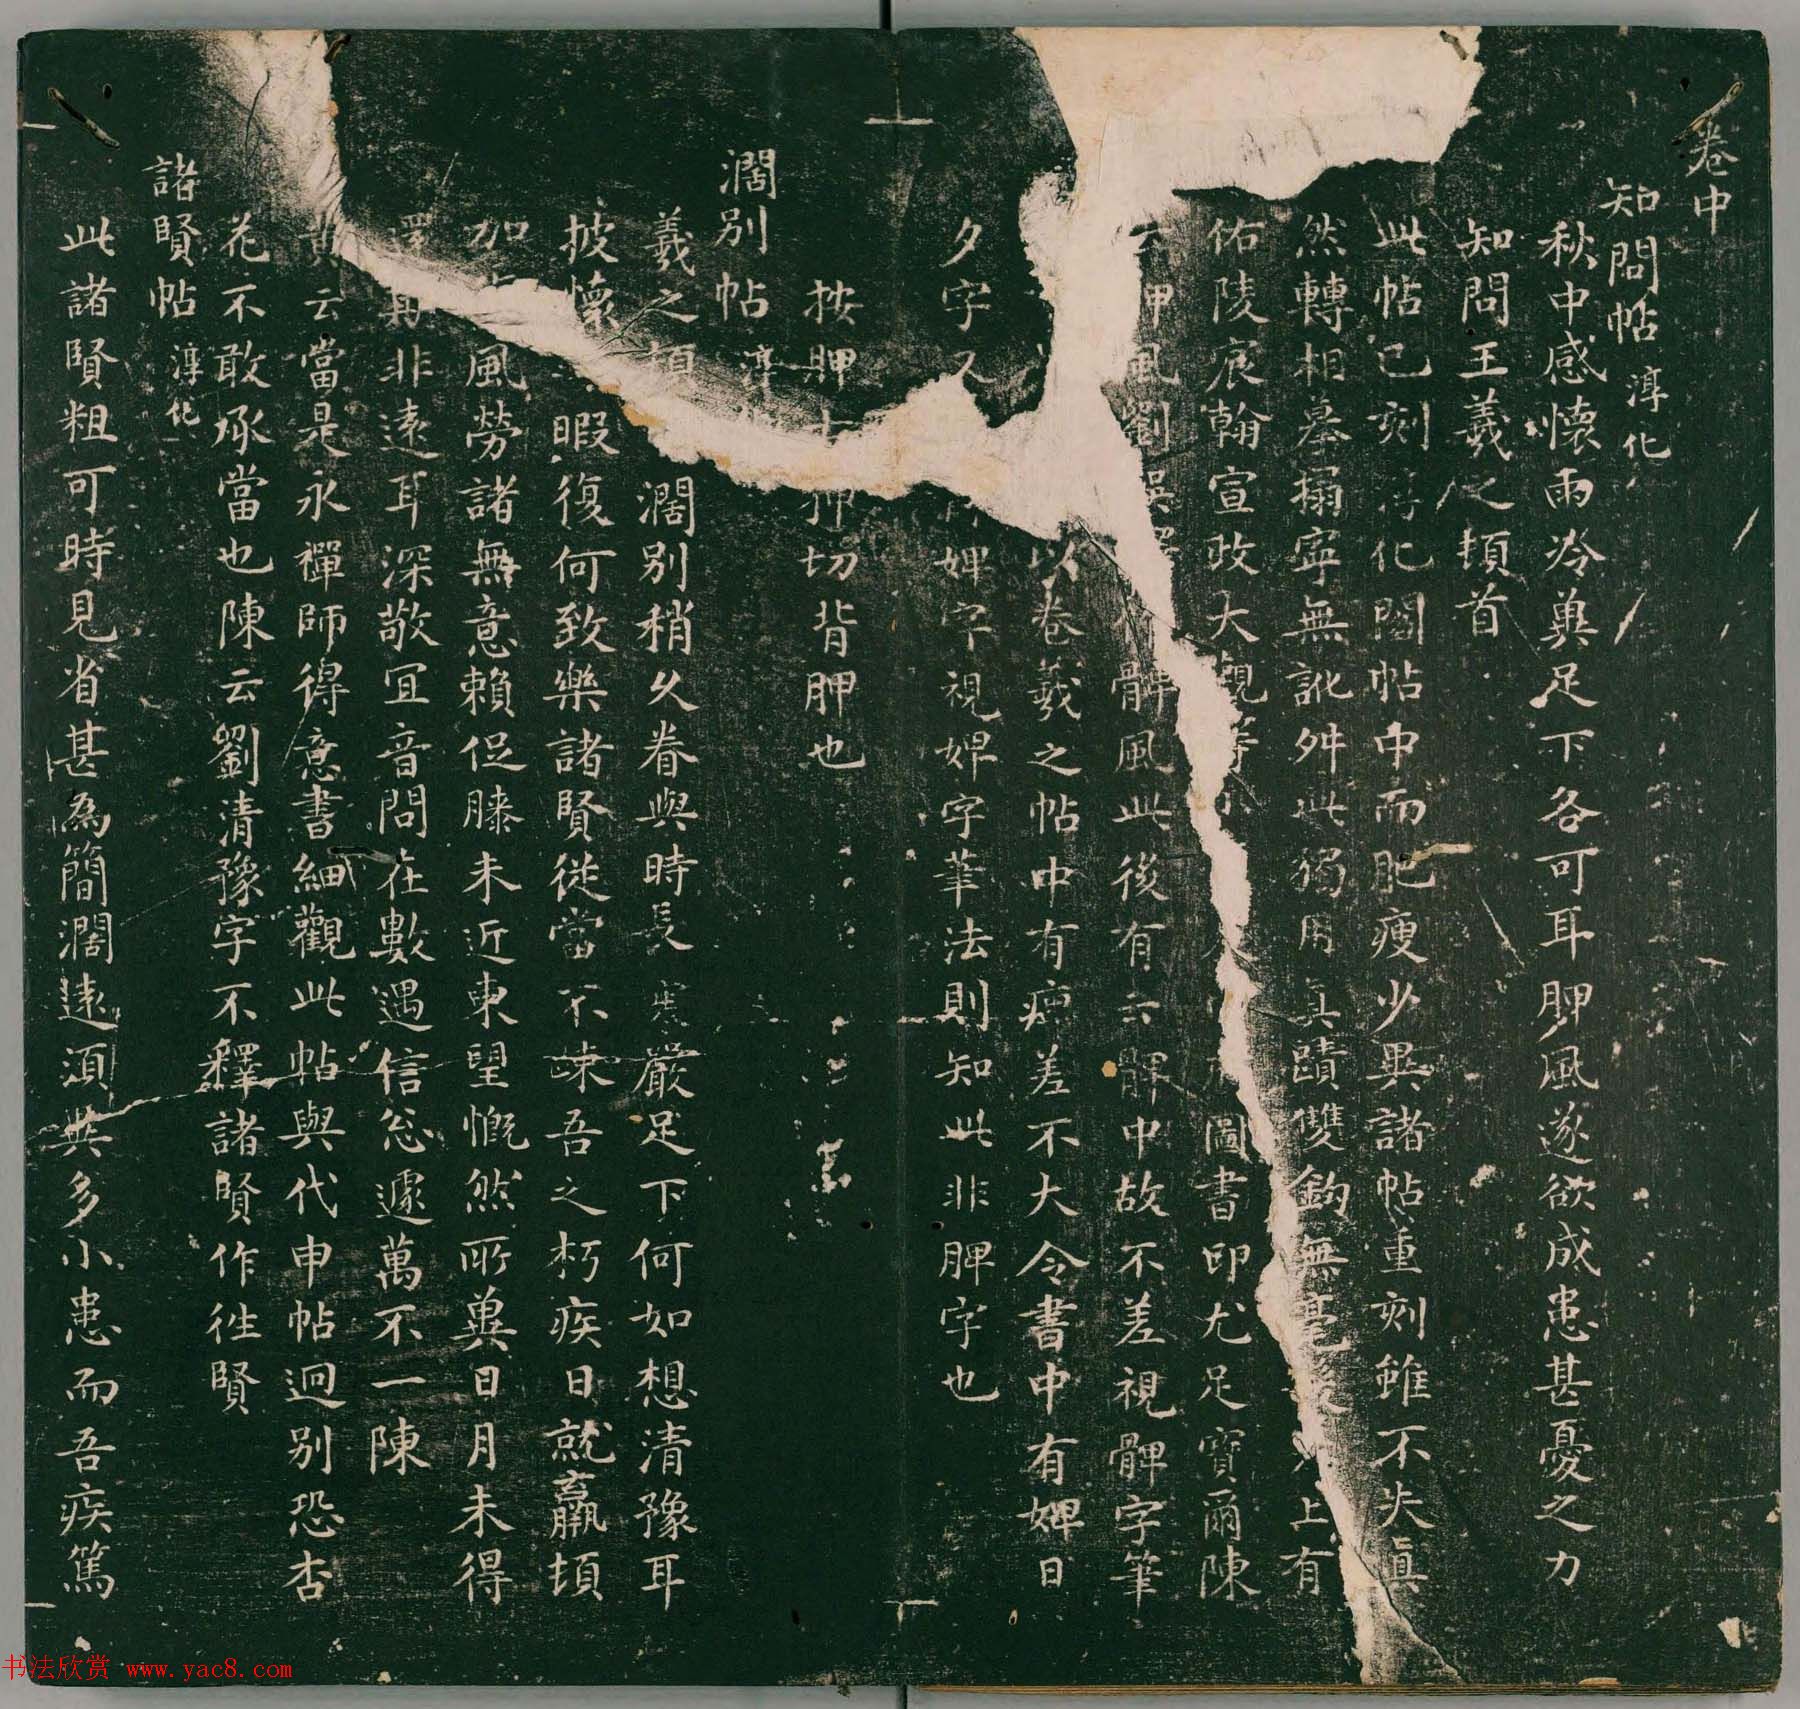 卷中
知問帖 淳化
秋中感懷雨冷冀足下各可耳胛風遂欲成患甚憂之力
知問王羲之頓首
此帖已刻淳化閣帖中而肥瘦少異諸帖重刻雖不失眞
然轉相摹搨寧無訛舛此獨用真蹟雙鉤無毫 上有
佑陵宸翰宣政大觀等 圖書印尤足寶爾陳
云胛風劉 髀風此後有云髀中故不差視髀字筆
以卷羲之帖中有痹差不大令書中有婢日
夕字又 婢字視婢字筆法則知此非脾字也
按胛 押切背胛也
濶別帖 淳
羲之頓 濶別稍久眷與時長寒嚴足下何如想清豫耳
披懷 暇復何致樂諸賢從當不疎吾之朽疾日就羸頓
加 風勞諸無意賴促膝未近東望慨然所冀日月未得
非遠耳深敬宜音問在數遇信忩遽萬不一陳
黃云當是永禪師得意書細觀此帖與代申帖迥別恐杏
花不敢承當也陳云劉清豫字不釋諸賢作往賢
諸賢帖 淳化
此諸賢粗可時見省甚為簡濶遠須與多小患而吾疾篤
书法欣赏 www.yac8.com